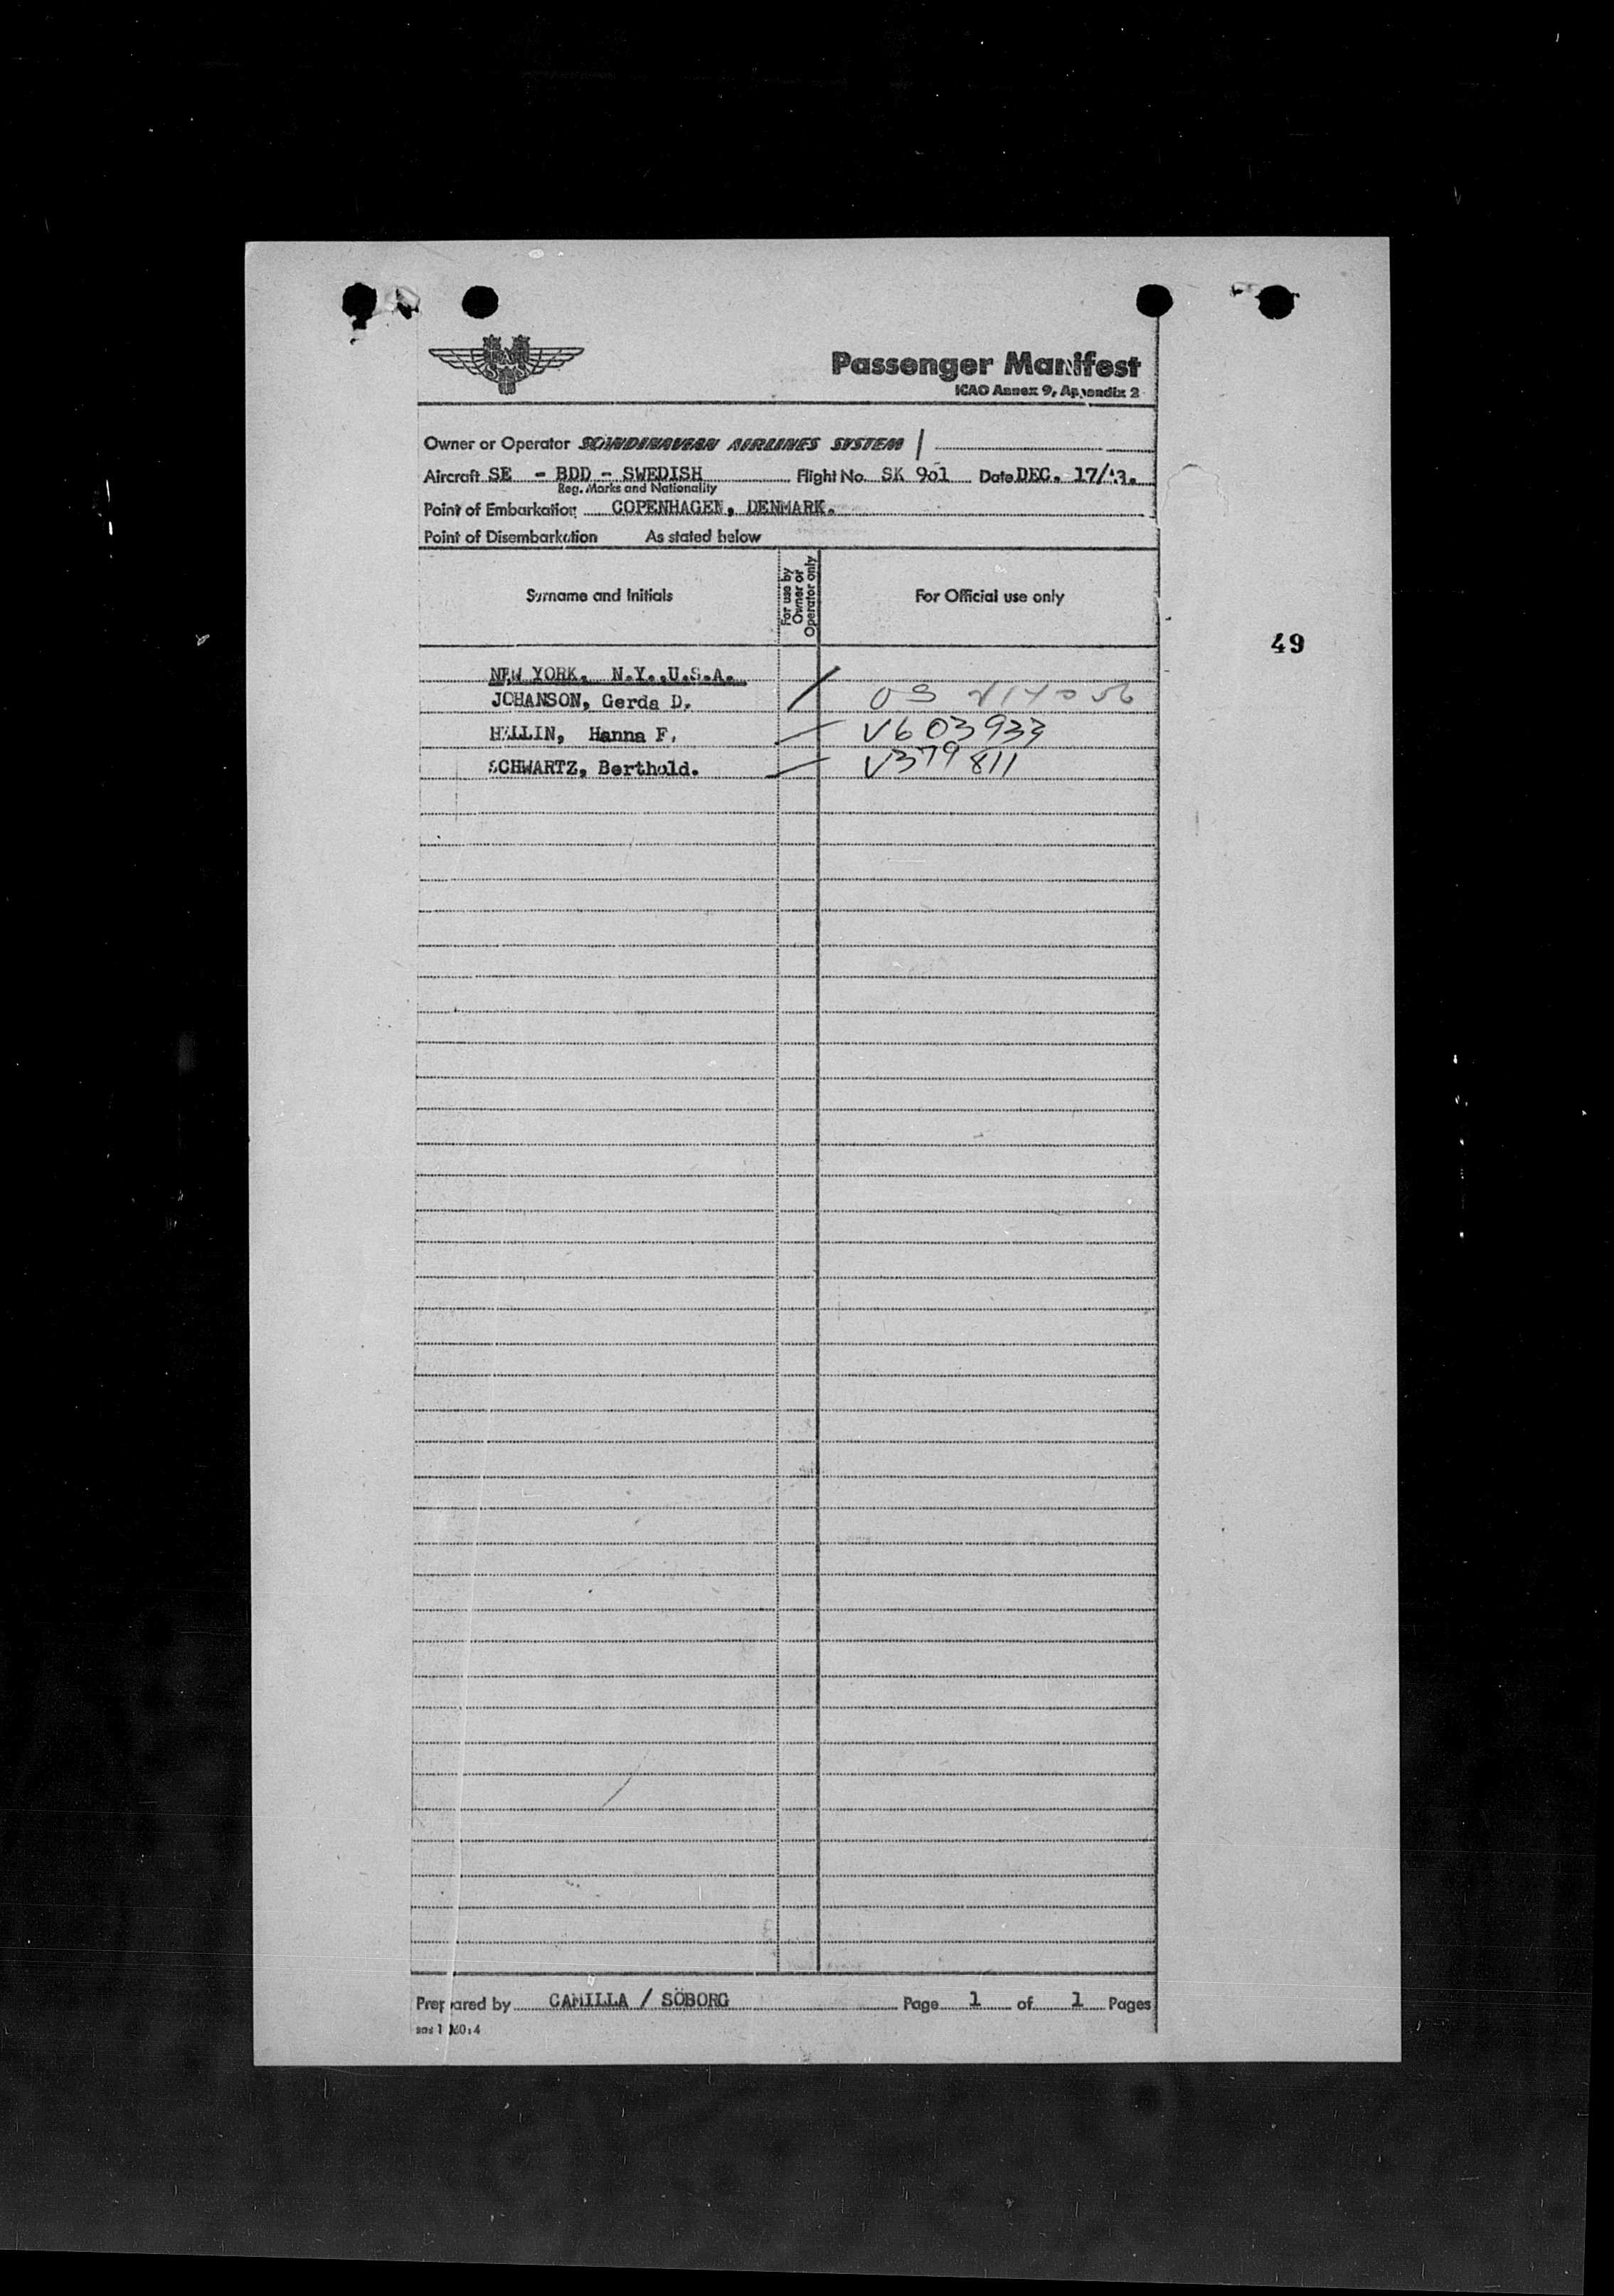 SAS
Passenger Manifest
ICAO Annex 9, Appendix 2
Owner or Operator SCANDINAVIAN AIRLINES SYSTEM /
Aircraft SE - BDD - SWEDISH Flight No. SK 901 Date DEC. 17/
Reg. Marks and Nationality
Point of Embarkation COPENHAGEN, DENMARK.
Point of Disembarkation As stated below
Surname and Initials
For use by Owner or Operator only
For Official use only
49
NEW YORK. N.Y.,U.S.A.
JOHANSON, Gerda D.
Hanna F. V603933
SCHWARTZ, Berthold. V379811
Prepared by CAMILLA / SÖBORG Page 1 of 1 Pages